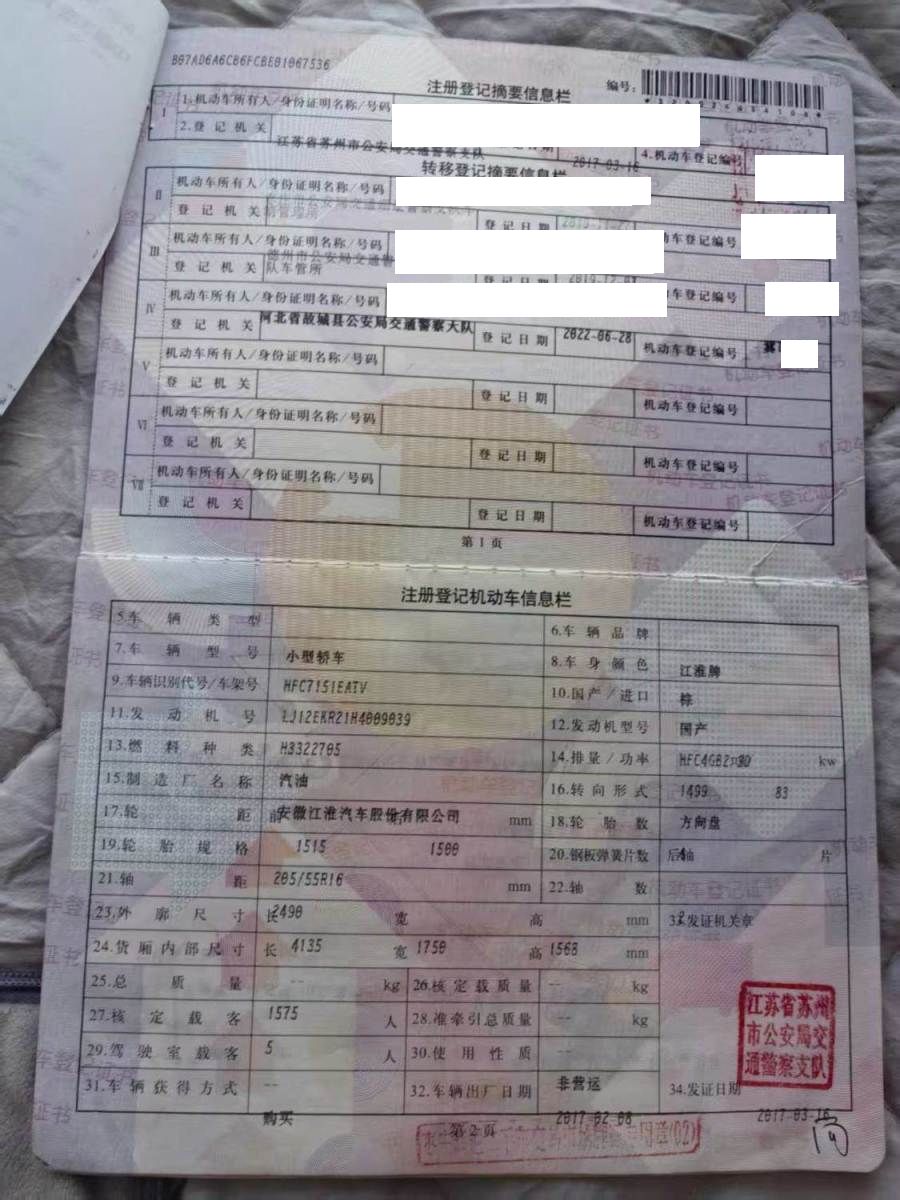 B07AD6A6CB6FCBE01067536
编号:
注册登记摘要信息栏
I 1.机动车所有人/身份证明名称/号码
2.登记机关 江苏省苏州市公安局交通警察支队 2017-03-16 4.机动车登记编号
转移登记摘要信息栏
II 机动车所有人/身份证明名称/号码
登记机关 登记日期 机动车登记编号
III 机动车所有人/身份证明名称/号码
登记机关 德州市公安局交通警 队车管所 登记日期 2019-12-03 机动车登记编号
IV 机动车所有人/身份证明名称/号码
登记机关 河北省故城县公安局交通警察大队 登记日期 2022-06-28 机动车登记编号 冀
V 机动车所有人/身份证明名称/号码
登记机关 登记日期 机动车登记编号
VI 机动车所有人/身份证明名称/号码
登记机关 登记日期 机动车登记编号
VII 机动车所有人/身份证明名称/号码
登记机关 登记日期 机动车登记编号
第1页
注册登记机动车信息栏
5.车辆类型 6.车辆品牌
7.车辆型号 小型轿车 8.车身颜色 江淮牌
9.车辆识别代号/车架号 HFC7151EATV 10.国产/进口 棕
11.发动机号 LJ12EKR21H4009039 12.发动机型号 国产
13.燃料种类 H3322705 14.排量/功率 HFC4GB2.3D kw
15.制造厂名称 汽油 16.转向形式 1499 83
17.轮距 前 安徽江淮汽车股份有限公司 mm 18.轮胎数 方向盘
19.轮胎规格 1515 1500 20.钢板弹簧片数 后轴 4 片
21.轴距 205/55R16 mm 22.轴数
23.外廓尺寸 长 2490 宽 高 mm 33.发证机关章
24.货厢内部尺寸 长 4135 宽 1750 高 1568 mm
25.总质量 -- kg 26.核定载质量 -- kg
27.核定载客 1575 人 28.准牵引总质量 -- kg
29.驾驶室载客 5 人 30.使用性质 --
31.车辆获得方式 -- 32.车辆出厂日期 非营运 34.发证日期
江苏省苏州
市公安局交
通警察支队
购买 2017-02-08 2017-03-16
第2页